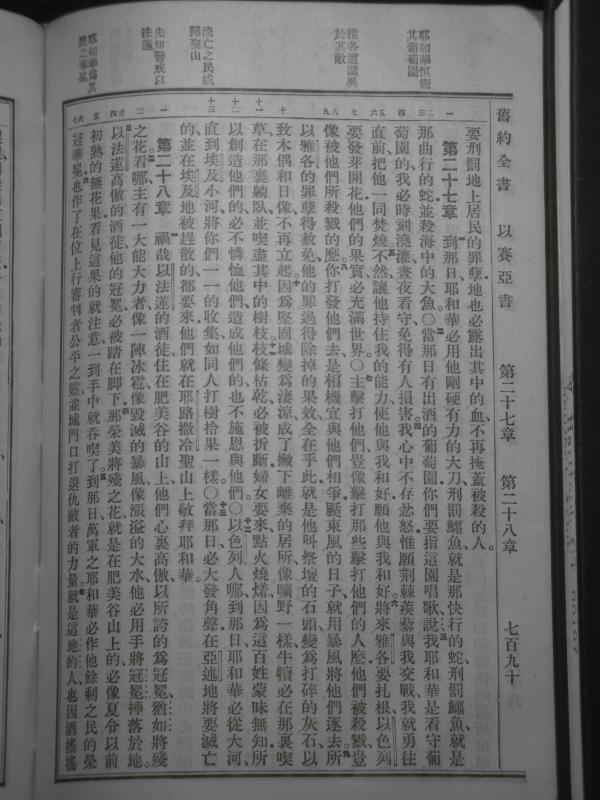 舊約全書 以賽亞書 第二十七章 第二十八章 七百九十
要刑罰地上居民的罪孽、地也必露出其中的血、不再掩蓋被殺的人。
第二十七章 到那日耶和華必用他剛硬有力的大刀刑罰鱷魚就是那快行的蛇、刑罰鱷魚就是
那曲行的蛇、並殺海中的大魚。〇當那日有出酒的葡萄園、你們要指這園唱歌說、我耶和華是看守葡
萄園的、我必時刻澆灌、晝夜看守、免得有人損害。我心中不存忿怒、惟願荊棘蒺藜與我交戰、我就勇往
直前、把他一同焚燒。不然、讓他持住我的能力、使他與我和好、願他與我和好。將來雅各要扎根、以色列
要發芽開花、他們的果實、必充滿世界。〇主擊打他們、豈像擊打那些擊打他們的人麼、他們被殺戮、豈
像被他們所殺戮的麼。你打發他們去、是相機宜與他們相爭、颳東風的日子、就用暴風將他們逐去。所
以雅各的罪孽得赦免、他的罪過得除掉的果效、全在乎此、就是他叫祭壇的石頭變為打碎的灰石、以
致木偶和日像、不再立起。因為堅固城變為淒涼、成了撇下離棄的居所、像曠野一樣、牛犢必在那裏喫
草、在那裏躺臥、並喫盡其中的樹枝。枝條枯乾、必被折斷、婦女要來點火燒著、因為這百姓蒙昧無知、所
以創造他們的必不憐恤他們、造成他們的也不施恩與他們。〇以色列人哪、到那日耶和華必從大河、
直到埃及小河、將你們一一的收集、如同人打樹拾果一樣。〇當那日必大發角聲、在亞述地將要滅亡
的、並在埃及地被趕散的、都要來、他們就在耶路撒冷聖山上敬拜耶和華。
第二十八章 禍哉、以法蓮的酒徒、住在肥美谷的山上、他們心裏高傲、以所誇的為冠冕、猶如將殘
之花。看哪、主有一大能大力者、像一陣冰雹、像毀滅的暴風、像漲溢的大水、他必用手將冠冕摔落於地。
以法蓮高傲的酒徒、他的冠冕必被踏在腳下。那榮美將殘之花、就是在肥美谷山上的、必像夏令以前
初熟的無花果、看見這果的就注意、一到手中就吞喫了。到那日萬軍之耶和華必作他餘剩之民的榮
冠華冕、也作了在位上行審判者公平之靈、並城門口打退仇敵者的力量。就是這地的人、也因酒搖搖
耶和華恆衛其葡萄園
雅各遭譴異於其敵
流亡之民咸歸聖山
先知警戒以法蓮
耶和華為其民之華冕